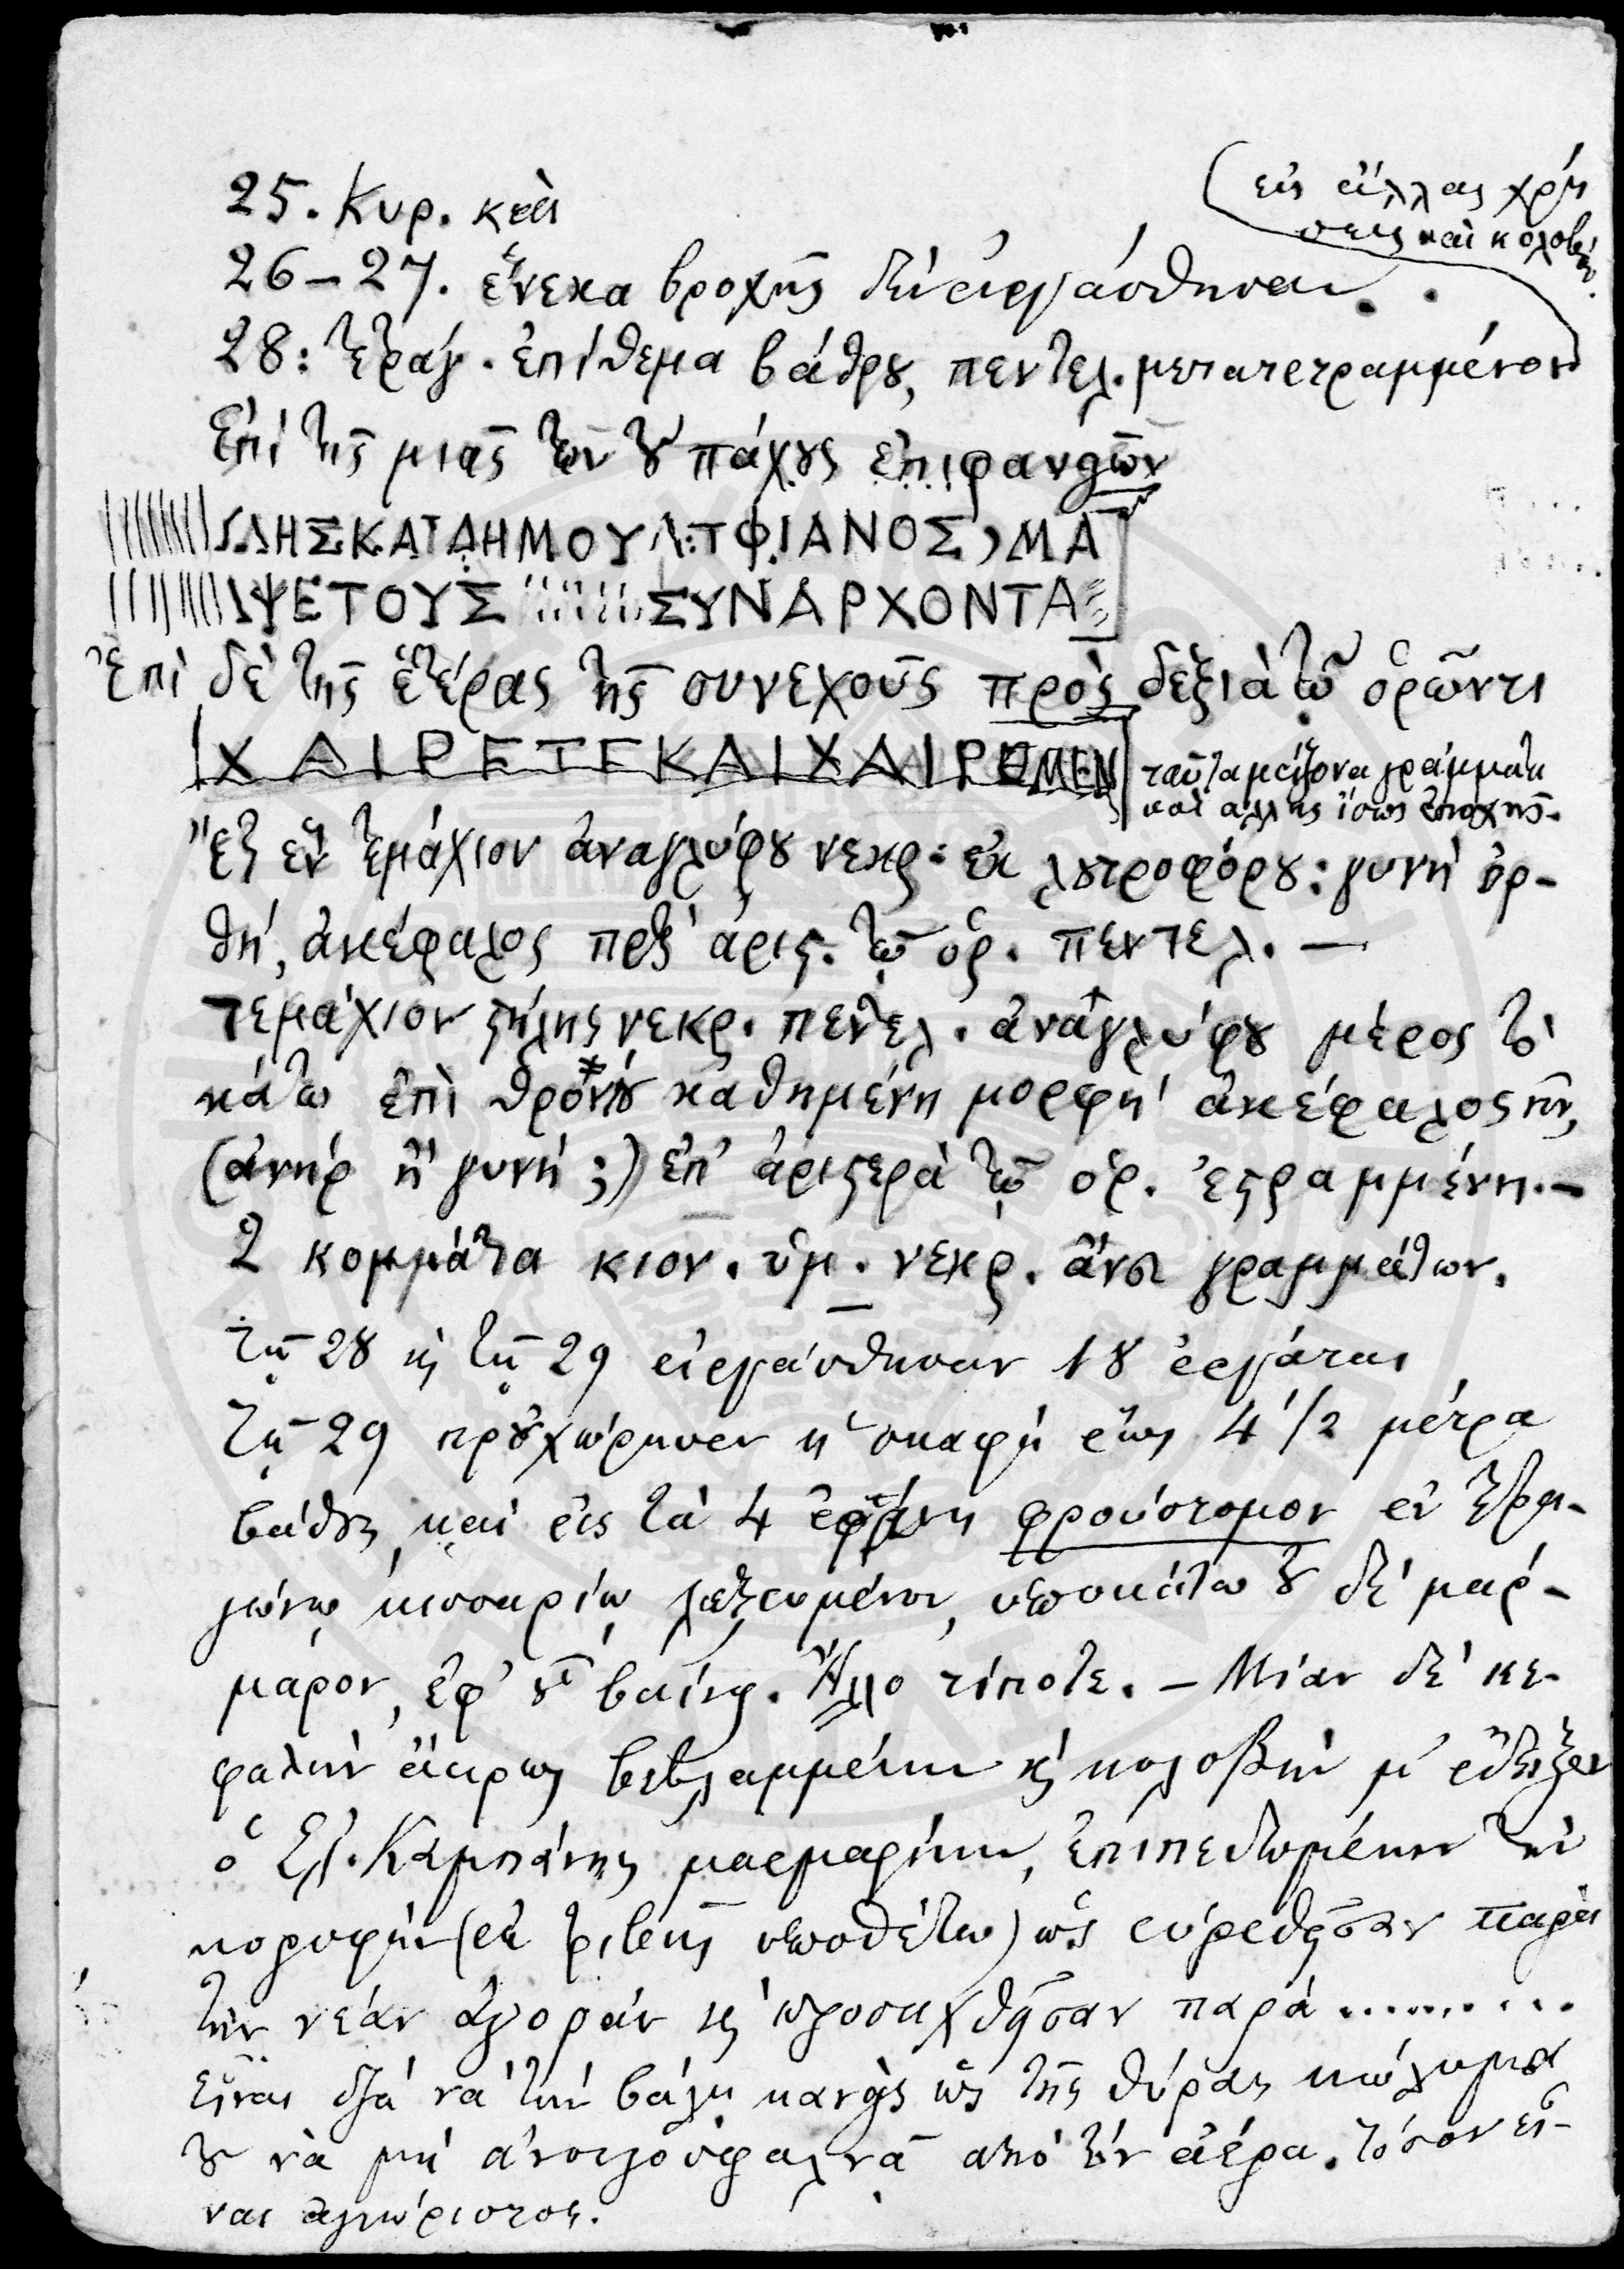 25. Κυρ. καὶ
26–27. ἕνεκα βροχῆς δὲν εἰργάσθησαν.
(εἰς ἄλλας χρή
σεις καὶ κολοβόν.
28: τετράγ. ἐπίθεμα βάθρου, πεντελ. μετατετραμμένον
Ἐπὶ τῆς μιᾶς τῶν τοῦ πάχους ἐπιφανειῶν
ΛΗΣΚΑΙΔΗΜΟΥΛ:ΤΦΙΑΝΟΣ)ΜΑ
ΙΨΕΤΟΥΣ ΣΥΝΑΡΧΟΝΤΑ
Ἐπὶ δὲ τῆς ἑτέρας τῆς συνεχοῦς πρὸς δεξιὰ τῷ ὁρῶντι
ΧΑΙΡΕΤΕΚΑΙΧΑΙΡΟΜΕΝ
ταῦτα μείζονα γράμματα
καὶ ἄλλης ἴσως ἐποχῆς.
Ἔτι ἓν τεμάχιον ἀναγλύφου νεκρ. ἐκ λουτροφόρου: γυνὴ ὀρ-
θή, ἀκέφαλος πρὸς ἀρις. τῷ ὁρ. πεντελ. —
τεμάχιον στήλης νεκρ. πεντελ. ἀναγλύφου μέρος τὸ
κάτω ἐπὶ θρόνου καθημένη μορφὴ ἀκέφαλος
(ἀνὴρ ἢ γυνή;) ἐπ' ἀριστερὰ τῷ ὁρ. ἐστραμμένη. —
2 κομμάτια κιον. ὑμ. νεκρ. ἄνευ γραμμάτων.
τῇ 28 καὶ τῇ 29 εἰργάσθησαν 18 ἐργάται
Τῇ 29 προὐχώρησεν ἡ σκαφὴ ἕως 4 1/2 μέτρα
βάθος καὶ εἰς τὰ 4 ἐφάνη φρούστομον ἐν τετρα-
γώνῳ κισσαρίῳ λαξευμένον, ὑποκάτω τοῦ δὲ μάρ-
μαρον, ἐφ' οὗ βαίνει. Ἄλλο τίποτε. – Μίαν δὲ κε-
φαλὴν ἄκρως βεβλαμμένην καὶ κολοβὴν μ' ἔδειξεν
ὁ Ἐλ. Καμπάνης μαρμαρίνην, ἐπιπεδωμένην τὴν
κορυφήν (ἐκ τριβῆς ὑποθέτω) ὡς εὑρεθεῖσαν παρὰ
τὴν νέαν ἀγορὰν καὶ προσαχθεῖσαν παρά ..........
Εἶναι διὰ νὰ τὴν βάλῃ κανεὶς ὡς τῆς θύρας κώλυμα
τοῦ νὰ μὴ ἀνοιγοσφαλνᾷ ἀπὸ τὸν ἀέρα. τόσον εἶ-
ναι ἀγνώριστος.